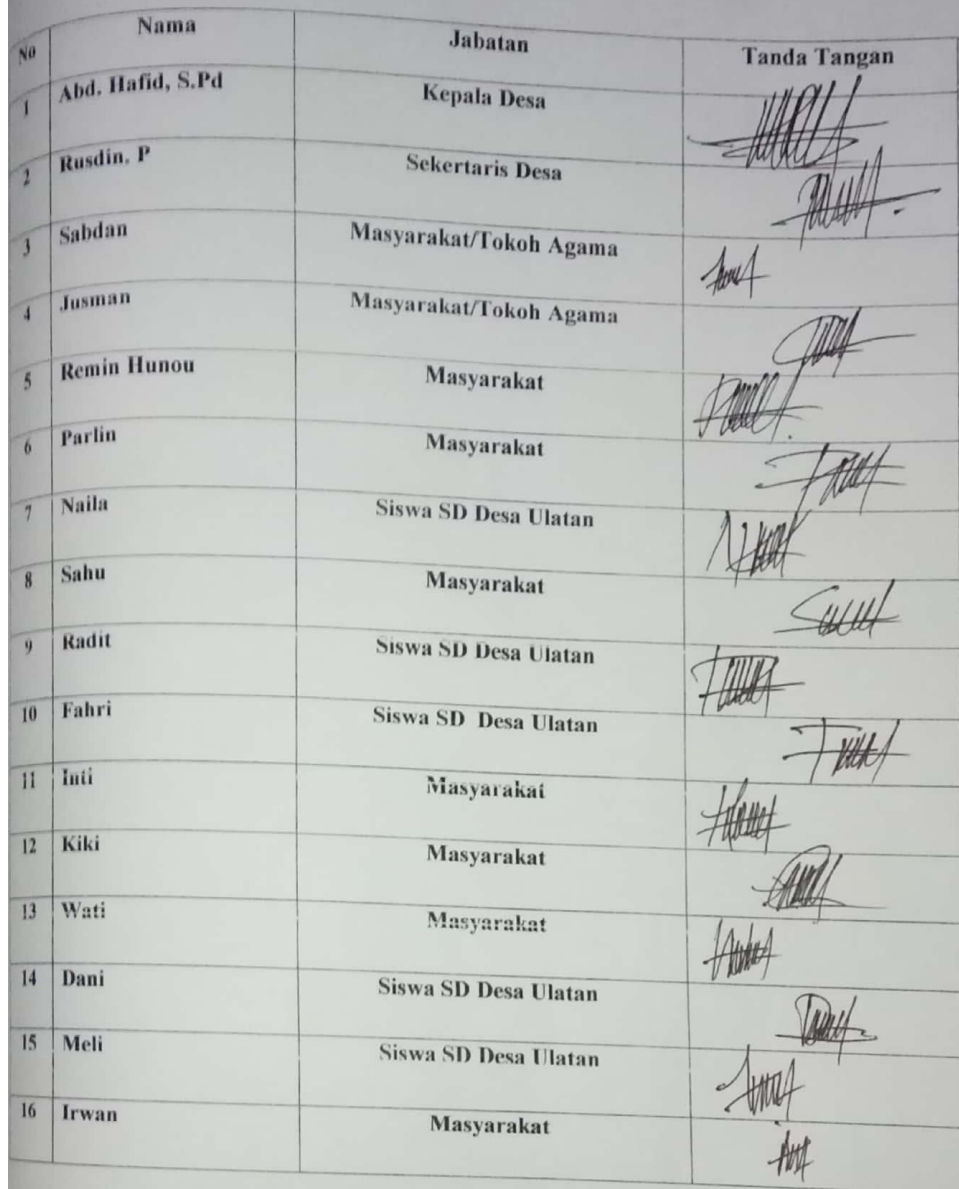 No Nama Jabatan Tanda Tangan
1 Abd. Hafid, S.Pd Kepala Desa
2 Rusdin. P Sekertaris Desa
3 Sabdan Masyarakat/Tokoh Agama
4 Jusman Masyarakat/Tokoh Agama
5 Remin Hunou Masyarakat
6 Parlin Masyarakat
7 Naila Siswa SD Desa Ulatan
8 Sahu Masyarakat
9 Radit Siswa SD Desa Ulatan
10 Fahri Siswa SD Desa Ulatan
11 Inti Masyarakat
12 Kiki Masyarakat
13 Wati Masyarakat
14 Dani Siswa SD Desa Ulatan
15 Meli Siswa SD Desa Ulatan
16 Irwan Masyarakat